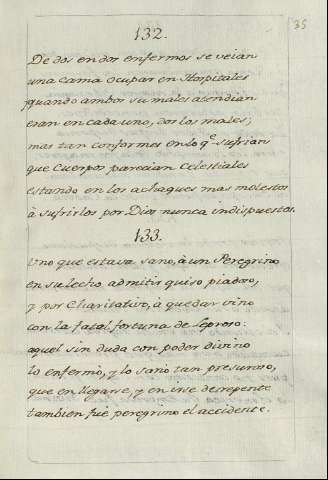 35
132.
De dos en dos enfermos se veian
una cama ocupar en Hospitales
quando ambos su males atendian
eran en cada uno, dos los males;
mas tan conformes en lo q.e sufrian
que Cuerpos parecian Celestiales
estando en los achaques mas molestos
à sufrirlos por Dios nunca indispuestos.
133.
Uno que estava sano, à un Peregrino
en su lecho admitir quiso piadoso,
y por Charitativo, à quedar vino
con la fatal fortuna de Leproso:
aquel sin duda con poder divino
lo enfermò, y lo sanò tan presuroso,
que en llegarse, y en irse derepente
tambien fuè peregrino el accidente.